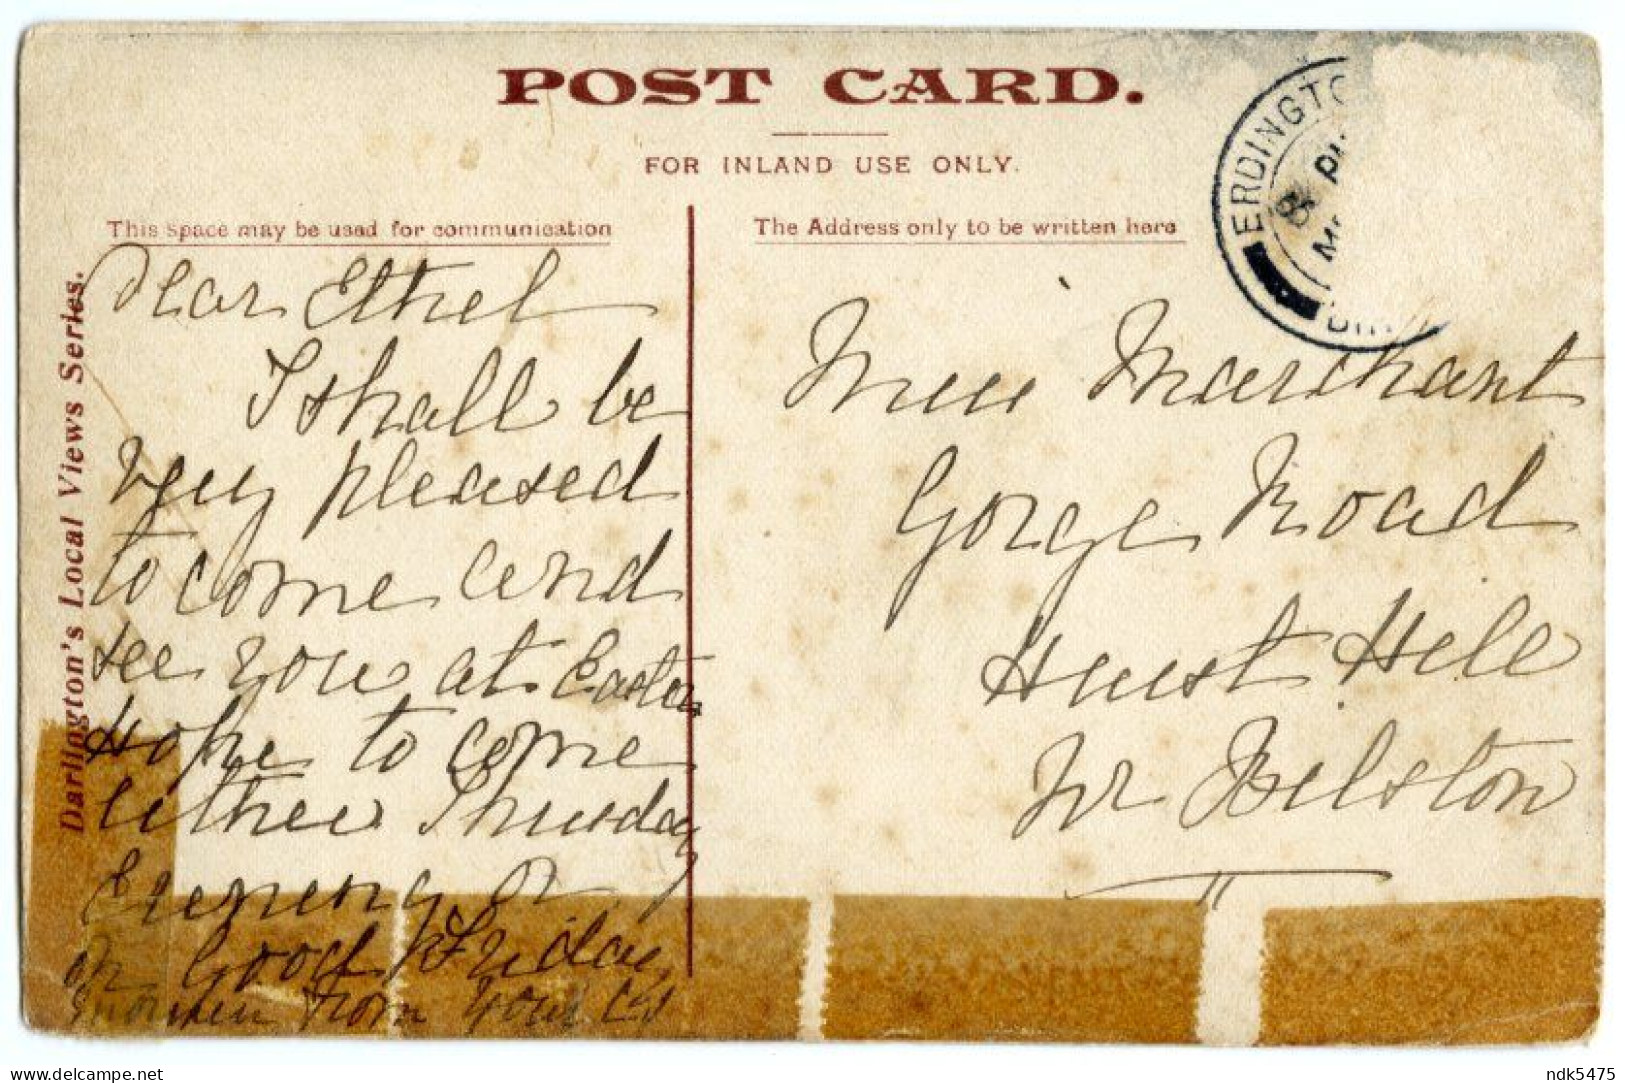 POST CARD.
FOR INLAND USE ONLY.
This space may be used for communication
The Address only to be written here
Darlington's Local Views Series.
ERDINGTO
Dear Ethel
I shall be
very pleased
to come and
see you at Easter
Hope to come
either Thursday
Evening or
on Good Friday
from your
Miss Marchant
Gorge Road
Hurst Hill
Nr Bilston
delcampe.net
ndk5475